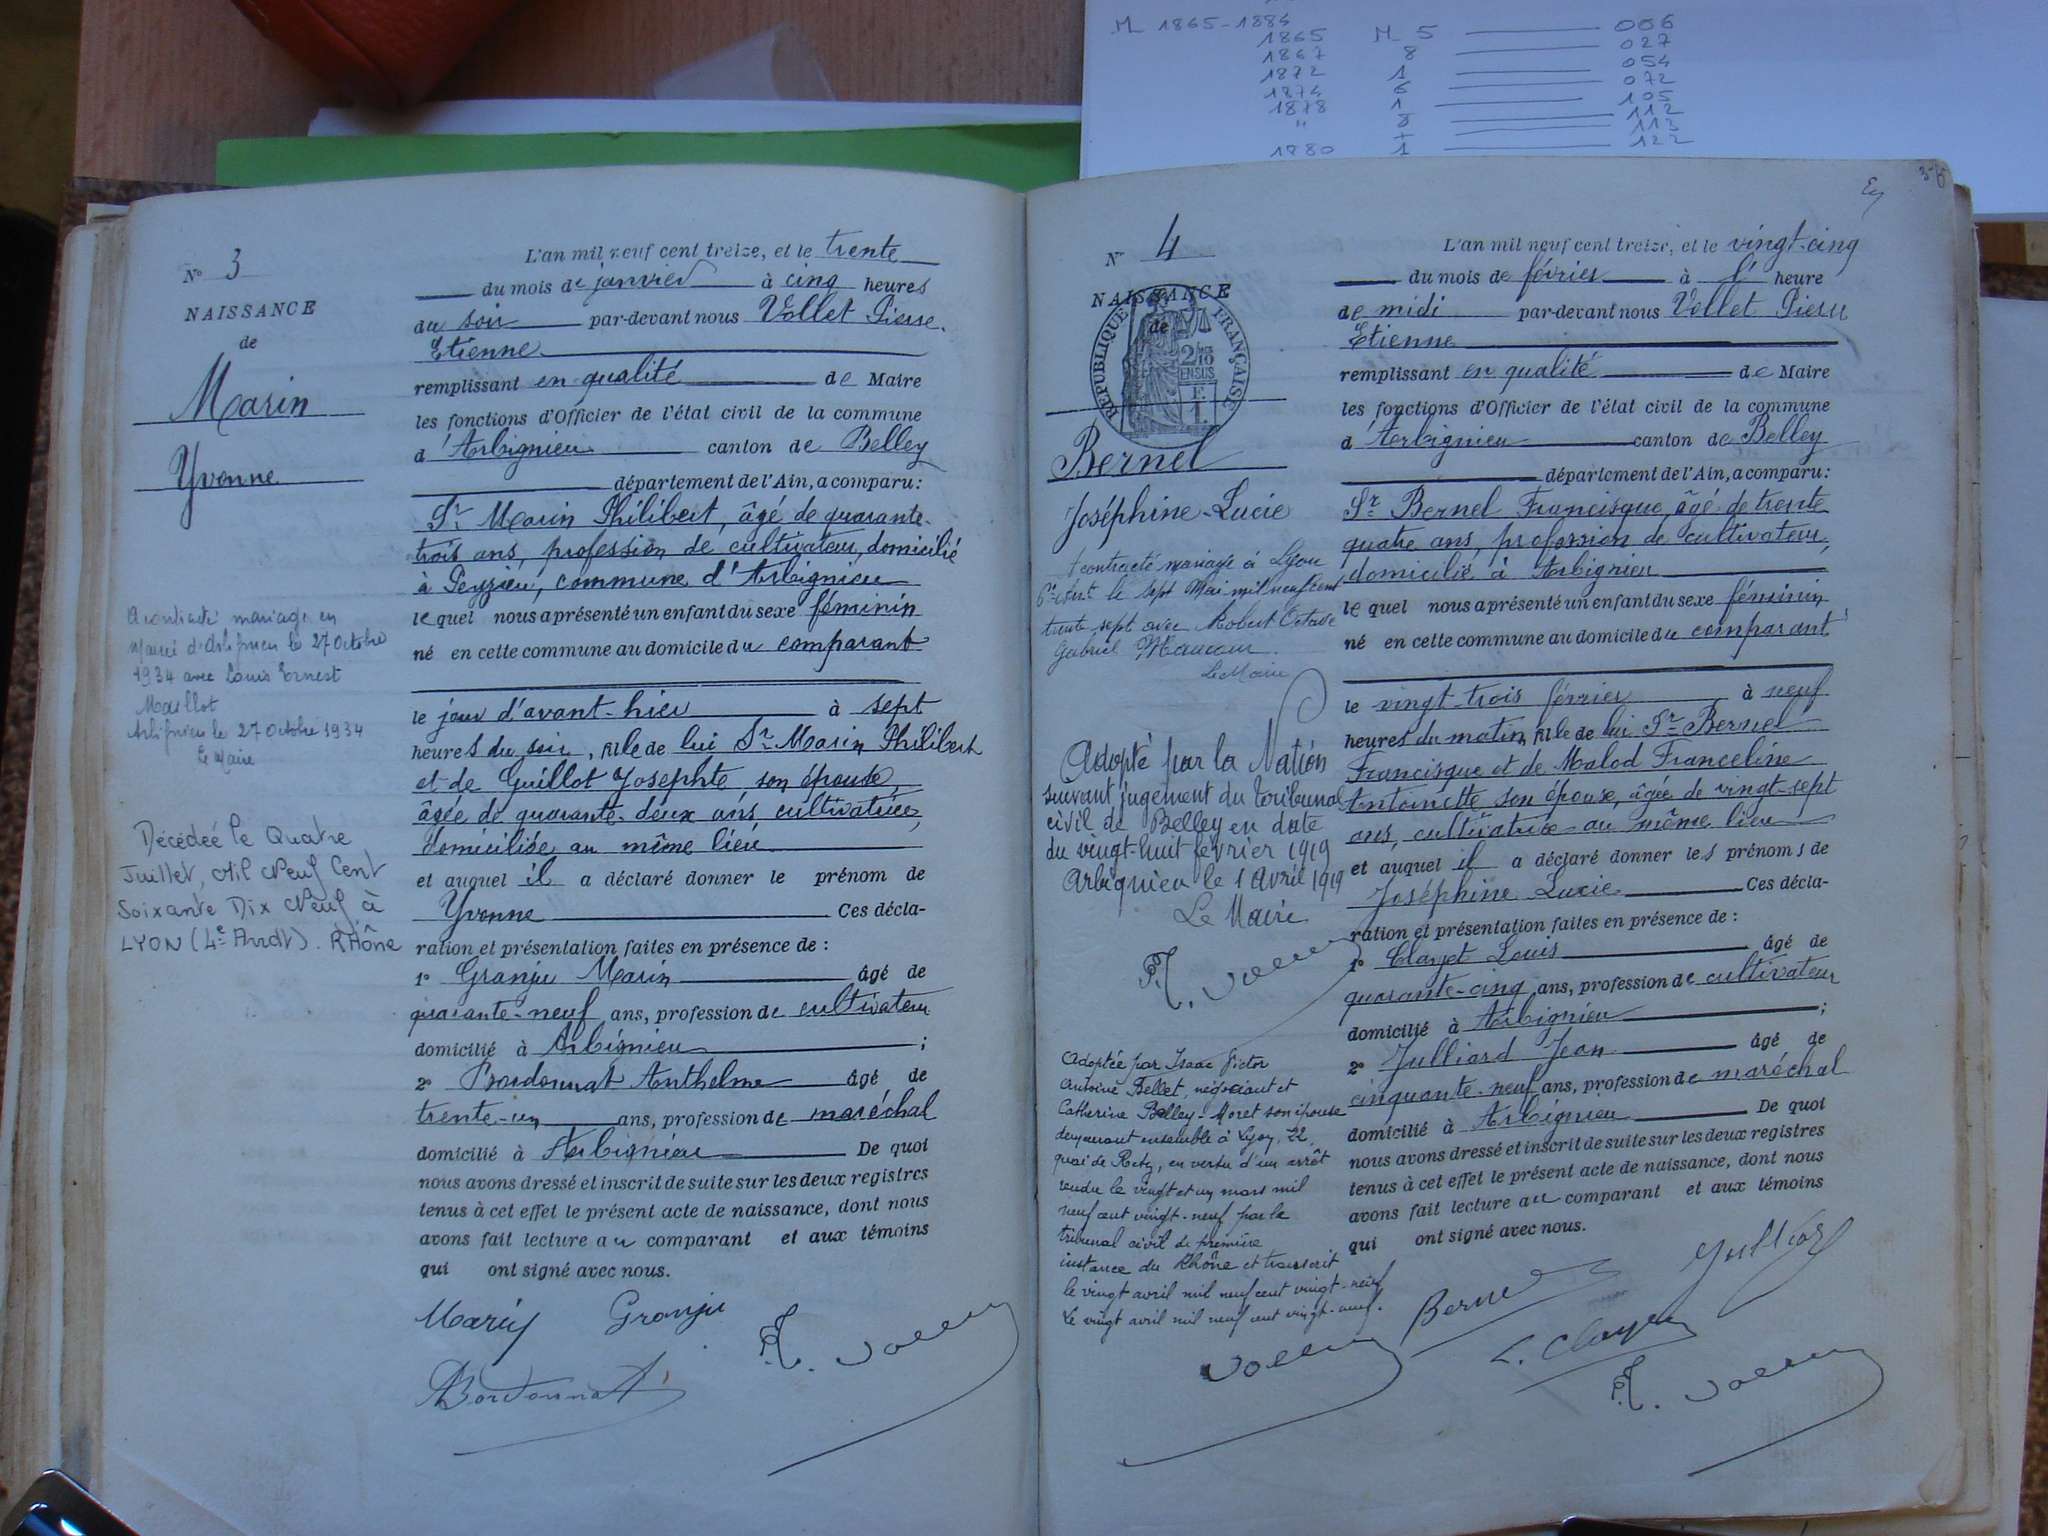 M 1865-1884
1865 M 5 006
1867 8 027
1872 1 054
1874 6 072
1878 1 105
" 8 112
113
1880 1 122
N° 3
NAISSANCE
de
Marin
Yvonne
A contracté mariage en
Mairie d'Arbignieu le 27 Octobre
1934 avec Louis Ernest
Maillot
Arbignieu le 27 Octobre 1934
Le Maire
Décédée le Quatre
Juillet, Mil Neuf Cent
Soixante Dix Neuf à
LYON (4e Arrdt). RHône
L'an mil neuf cent treize, et le trente
du mois de janvier à cinq heures
du soir par-devant nous Vollet Pierre
Etienne
remplissant en qualité de Maire
les fonctions d'Officier de l'état civil de la commune
d'Arbignieu canton de Belley
département de l'Ain, a comparu :
Sr Marin Philibert, âgé de quarante-
trois ans, profession de cultivateur, domicilié
à Peyzieu, commune d'Arbignieu
lequel nous a présenté un enfant du sexe féminin
né en cette commune au domicile du comparant
le jour d'avant-hier à sept
heures du soir, fille de lui Sr Marin Philibert
et de Guillot Josephte, son épouse,
âgée de quarante-deux ans, cultivatrice,
domiciliée au même lieu
et auquel il a déclaré donner le prénom de
Yvonne Ces décla-
ration et présentation faites en présence de :
1° Granju Marin âgé de
quarante-neuf ans, profession de cultivateur
domicilié à Arbignieu ;
2° Bordonnat Anthelme âgé de
trente-un ans, profession de maréchal
domicilié à Arbignieu De quoi
nous avons dressé et inscrit de suite sur les deux registres
tenus à cet effet le présent acte de naissance, dont nous
avons fait lecture au comparant et aux témoins
qui ont signé avec nous.
Marin Granju
Bordonnat
N° 4
NAISSANCE
de
RÉPUBLIQUE FRANÇAISE
2/10 EN SUS
Bernel
Joséphine-Lucie
A contracté mariage à Lyon
6e arrt le sept Mai mil neuf cent
trente sept avec Robert Octave
Gabriel
Le Maire
Adopté par la Nation
suivant jugement du tribunal
civil de Belley en date
du vingt-huit février 1919
Arbignieu le 1 avril 1919
Le Maire
Adoptée par Isaac Victor
Antoine Bellet, négociant et
Catherine Belley-Moret son épouse
demeurant ensemble à Lyon, 22,
quai de Retz, en vertu d'un arrêt
rendu le vingt et un mars mil
neuf cent vingt-neuf par le
tribunal civil de première
instance du Rhône et transcrit
le vingt avril mil neuf cent vingt-neuf
Le vingt avril mil neuf cent vingt-neuf.
L'an mil neuf cent treize, et le vingt-cinq
du mois de février à l' heure
de midi par-devant nous Vollet Pierre
Etienne
remplissant en qualité de Maire
les fonctions d'Officier de l'état civil de la commune
d'Arbignieu canton de Belley
département de l'Ain, a comparu :
Sr Bernel Francisque, âgé de trente
quatre ans, profession de cultivateur,
domicilié à Arbignieu
lequel nous a présenté un enfant du sexe féminin
né en cette commune au domicile du comparant
le vingt-trois février à neuf
heures du matin, fille de lui Sr Bernel
Francisque et de Malod Franceline
Antoinette son épouse, âgée de vingt-sept
ans, cultivatrice au même lieu
et auquel il a déclaré donner les prénoms de
Joséphine Lucie Ces décla-
ration et présentation faites en présence de :
1° Clayet Louis âgé de
quarante-cinq ans, profession de cultivateur
domicilié à Arbignieu ;
2° Julliard Jean âgé de
cinquante-neuf ans, profession de maréchal
domicilié à Arbignieu De quoi
nous avons dressé et inscrit de suite sur les deux registres
tenus à cet effet le présent acte de naissance, dont nous
avons fait lecture au comparant et aux témoins
qui ont signé avec nous.
Bernel Julliard
L. Clayet